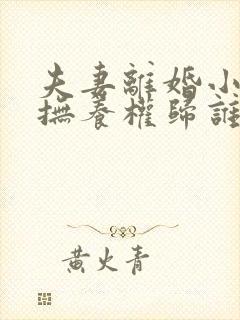 夫妻離婚小
撫養權歸誰
黃火青